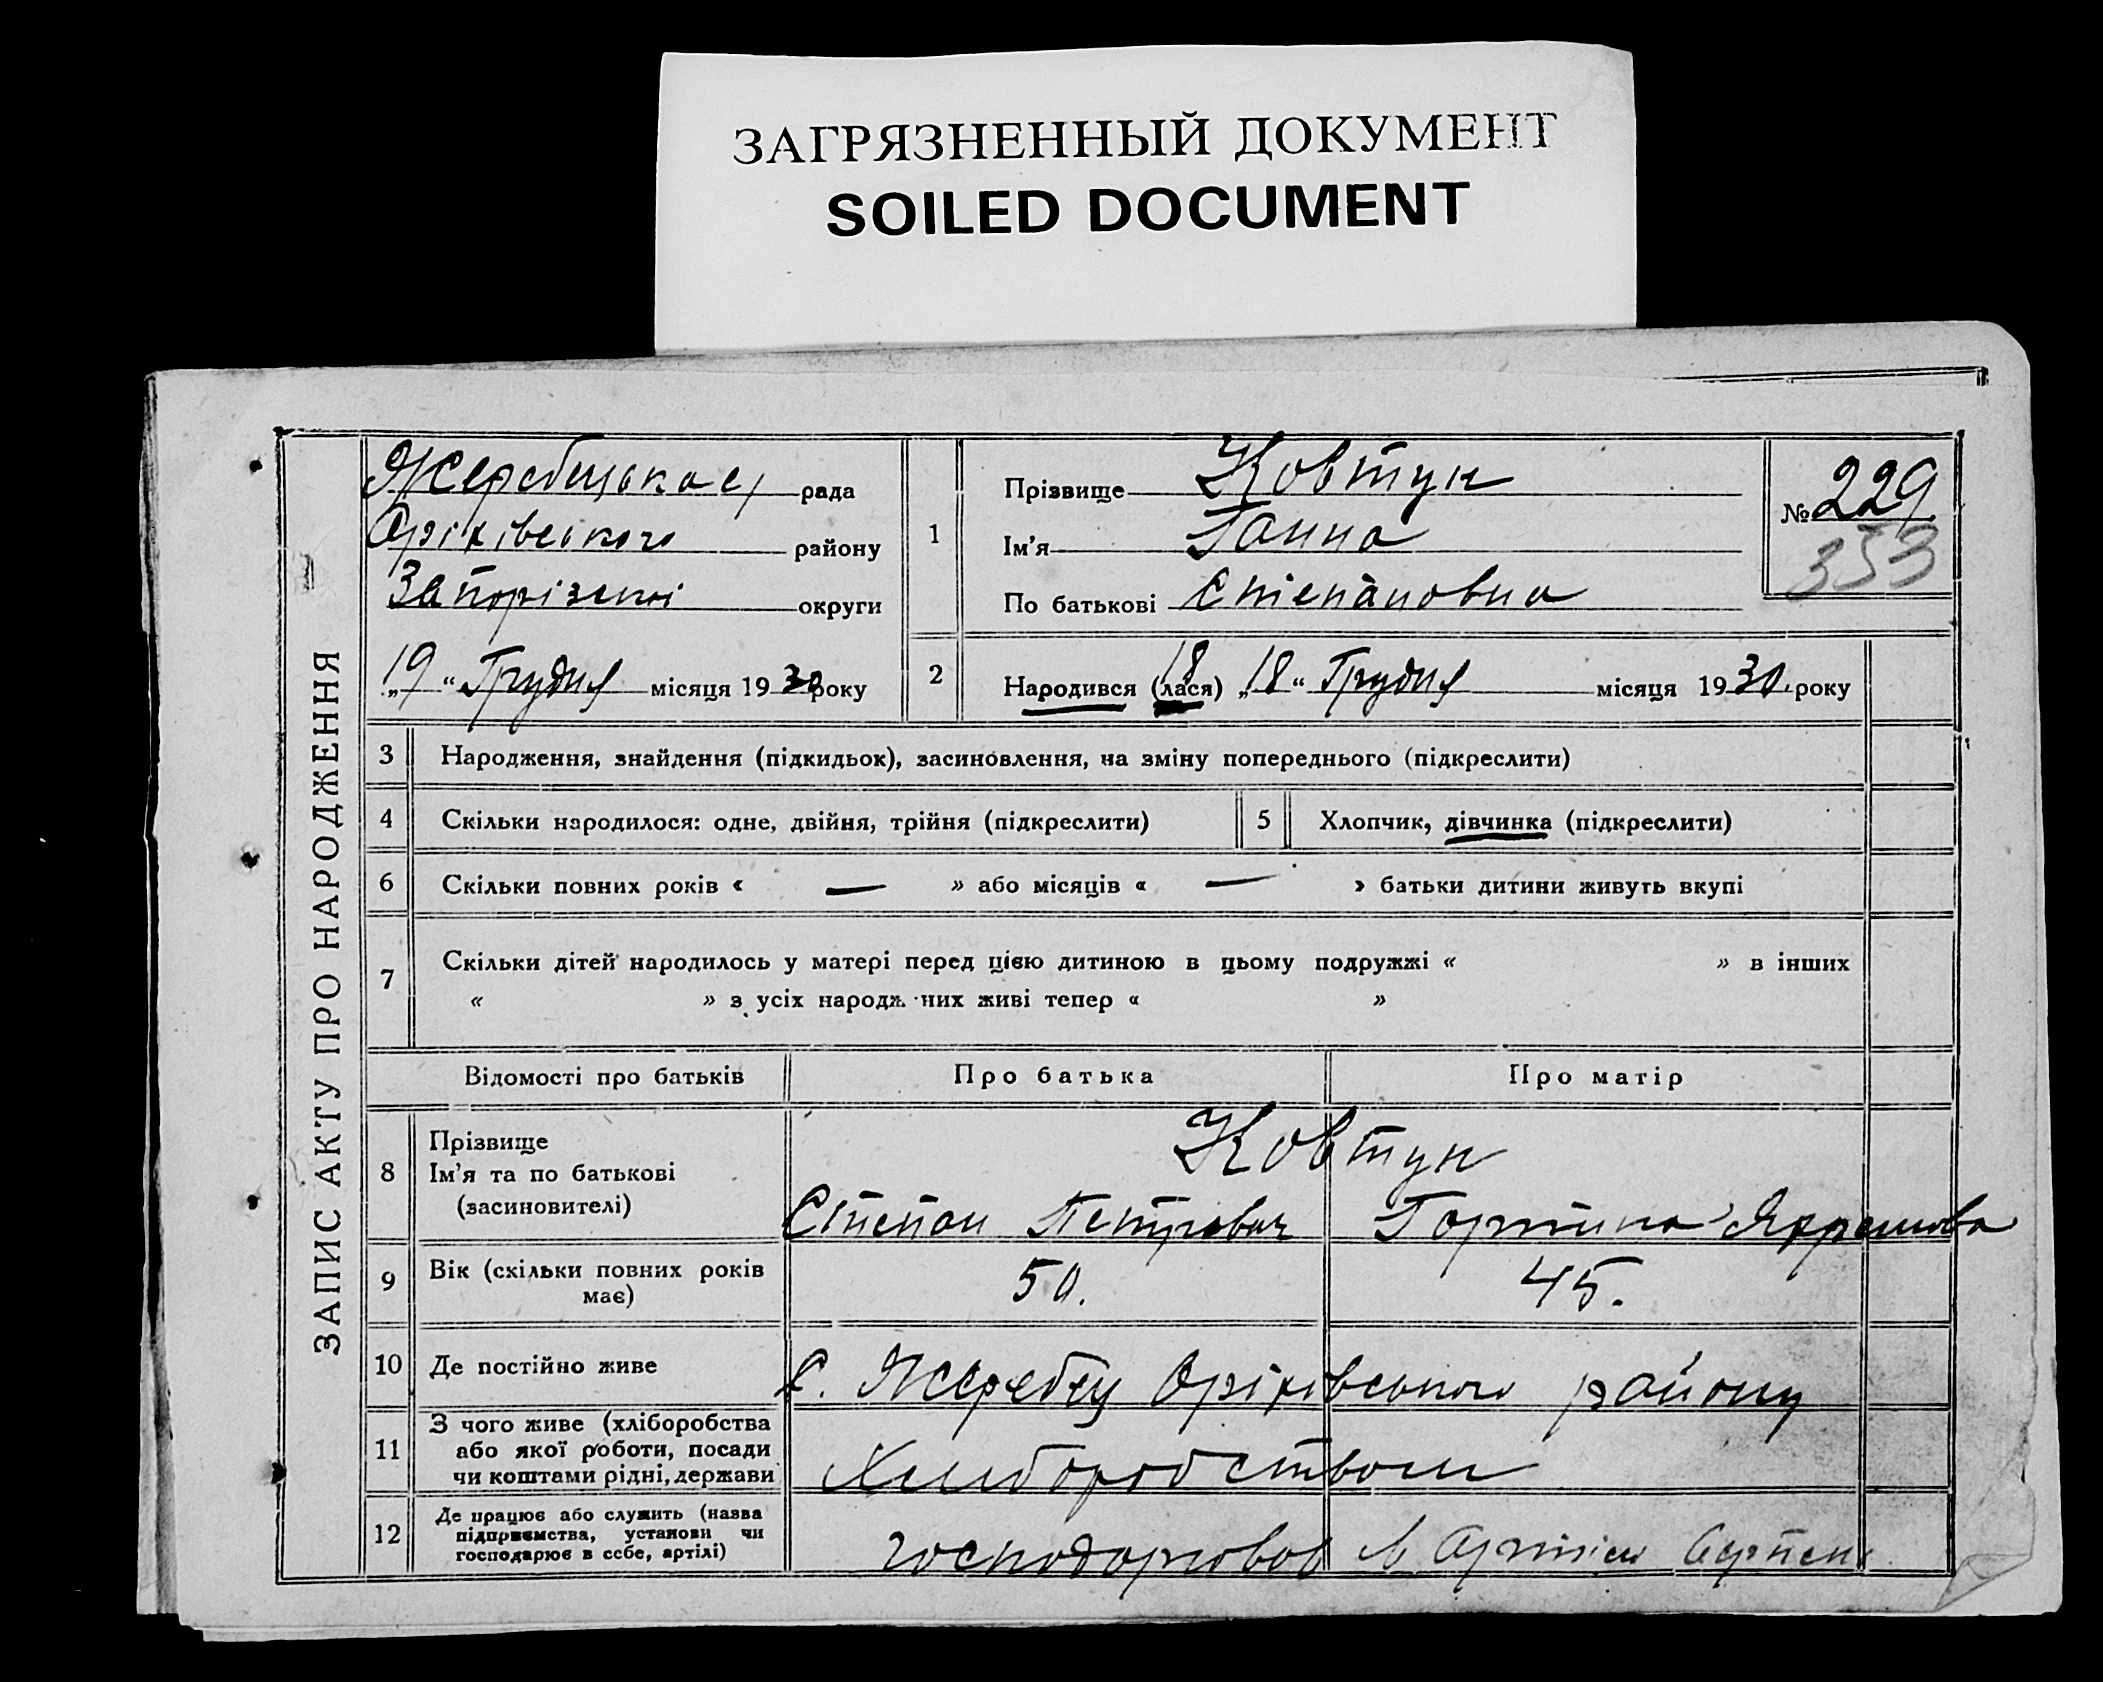 ЗАГРЯЗНЕННЫЙ ДОКУМЕНТ
SOILED DOCUMENT
ЗАПИС АКТУ ПРО НАРОДЖЕННЯ
Жеребецька рада
Оріхівського району
Запорізької округи
„19“ Грудня місяця 1930 року
1
Прізвище Ковтун
Ім’я Ганна
По батькові Степановна
№ 229
353
2
18
Народився (лася) „18“ Грудня місяця 1930. року
3 Народження, знайдення (підкидьок), засиновлення, на зміну попереднього (підкреслити)
4 Скільки народилося: одне, двійня, трійня (підкреслити)
5 Хлопчик, дівчинка (підкреслити)
6 Скільки повних років « — » або місяців « — » батьки дитини живуть вкупі
7 Скільки дітей народилось у матері перед цією дитиною в цьому подружжі « » в інших
« » з усіх народж них живі тепер « »
Відомості про батьків
Про батька
Про матір
8 Прізвище
Ім’я та по батькові
(засиновителі)
Ковтун
Степан Петрович
Горпина
9 Вік (скільки повних років
має)
50.
45.
10 Де постійно живе
с. Жеребец Оріхівського району
11 З чого живе (хліборобства
або якої роботи, посади
чи коштами рідні, держави
Хлиборобством
12 Де працює або служить (назва
підприємства, установи чи
господарює в себе, артілі)
господорював в Артіли